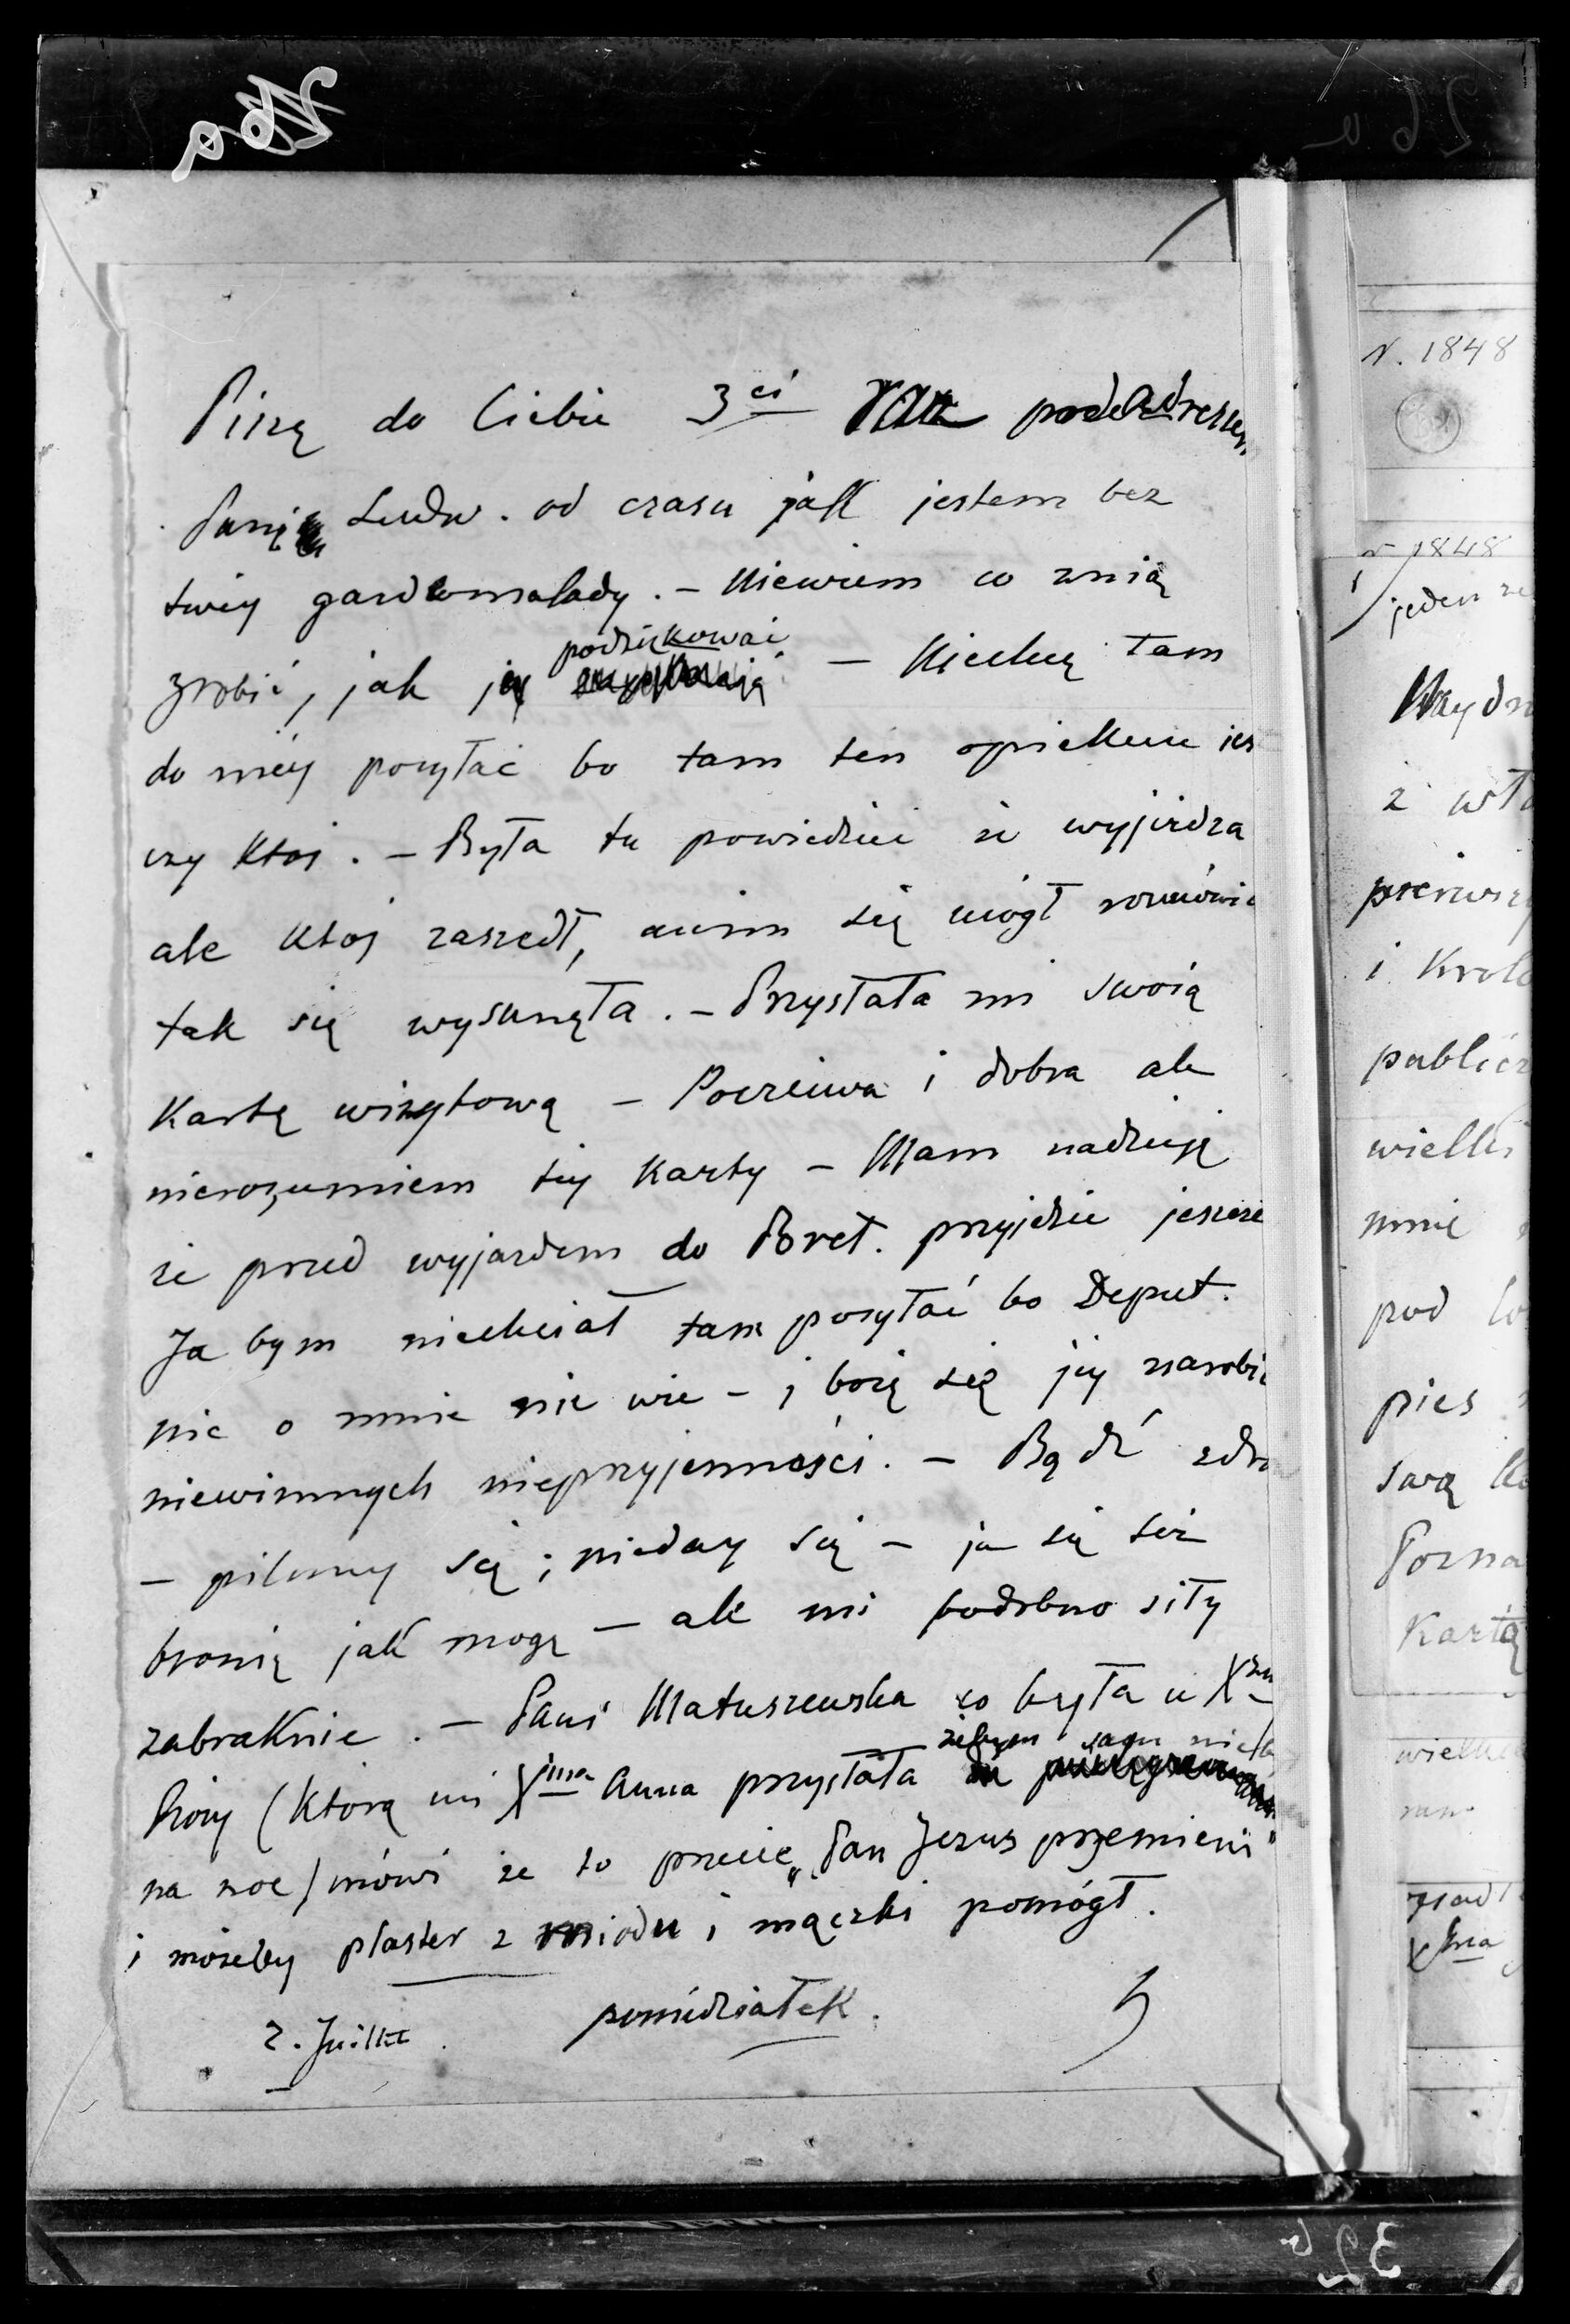 26a
26a
Piszę do Ciebie 3ci raz pod adresem
Panię Ludw. od czasu jak jestem bez
twéy gardemalady. – Niewiem co znią
podziękować
zrobić, jak jéy – Niechcę tam
do niéy posyłać bo tam ten opiekun jes
czy ktoś. – Była tu powiedzieć że wyjeżdza
ale ktoś zaszedł, nim się mógł rozmówić
tak się wysunęła. – Przysłała mi swoią
kartę wizytową – Poczciwa i dobra ale
nierozumiem téy karty – Mam nadzieję
że przed wyjazdem do Bret. przyjdzie jeszcze
Ja bym niechciał tam posyłać bo Deput.
nic o mnie nie wie – i boię się jéy narobić
niewinnych nieprzyjemności. – Bądź zdro
– pilnuy się; nieday się – ja się też
bronię jak mogę – ale mi podobno siły
zabraknie. – Pani Matuszewska co była u Xżn
żebym sam nieb
Róży (którą mi Xżna Anna przysłała
na noc) mówi że to przecie „Pan Jezus przemieni"
i możeby plaster z miodu i mączki pomógł.
2. Juillet. poniedziałek.
N. 1848
N 1848
jeden
Nayd
z wł
pierwsz
i Krol
publicz
wielki
mnie
pod
pies
swą
Pozna
Kartą
wielki
Xżna
32b